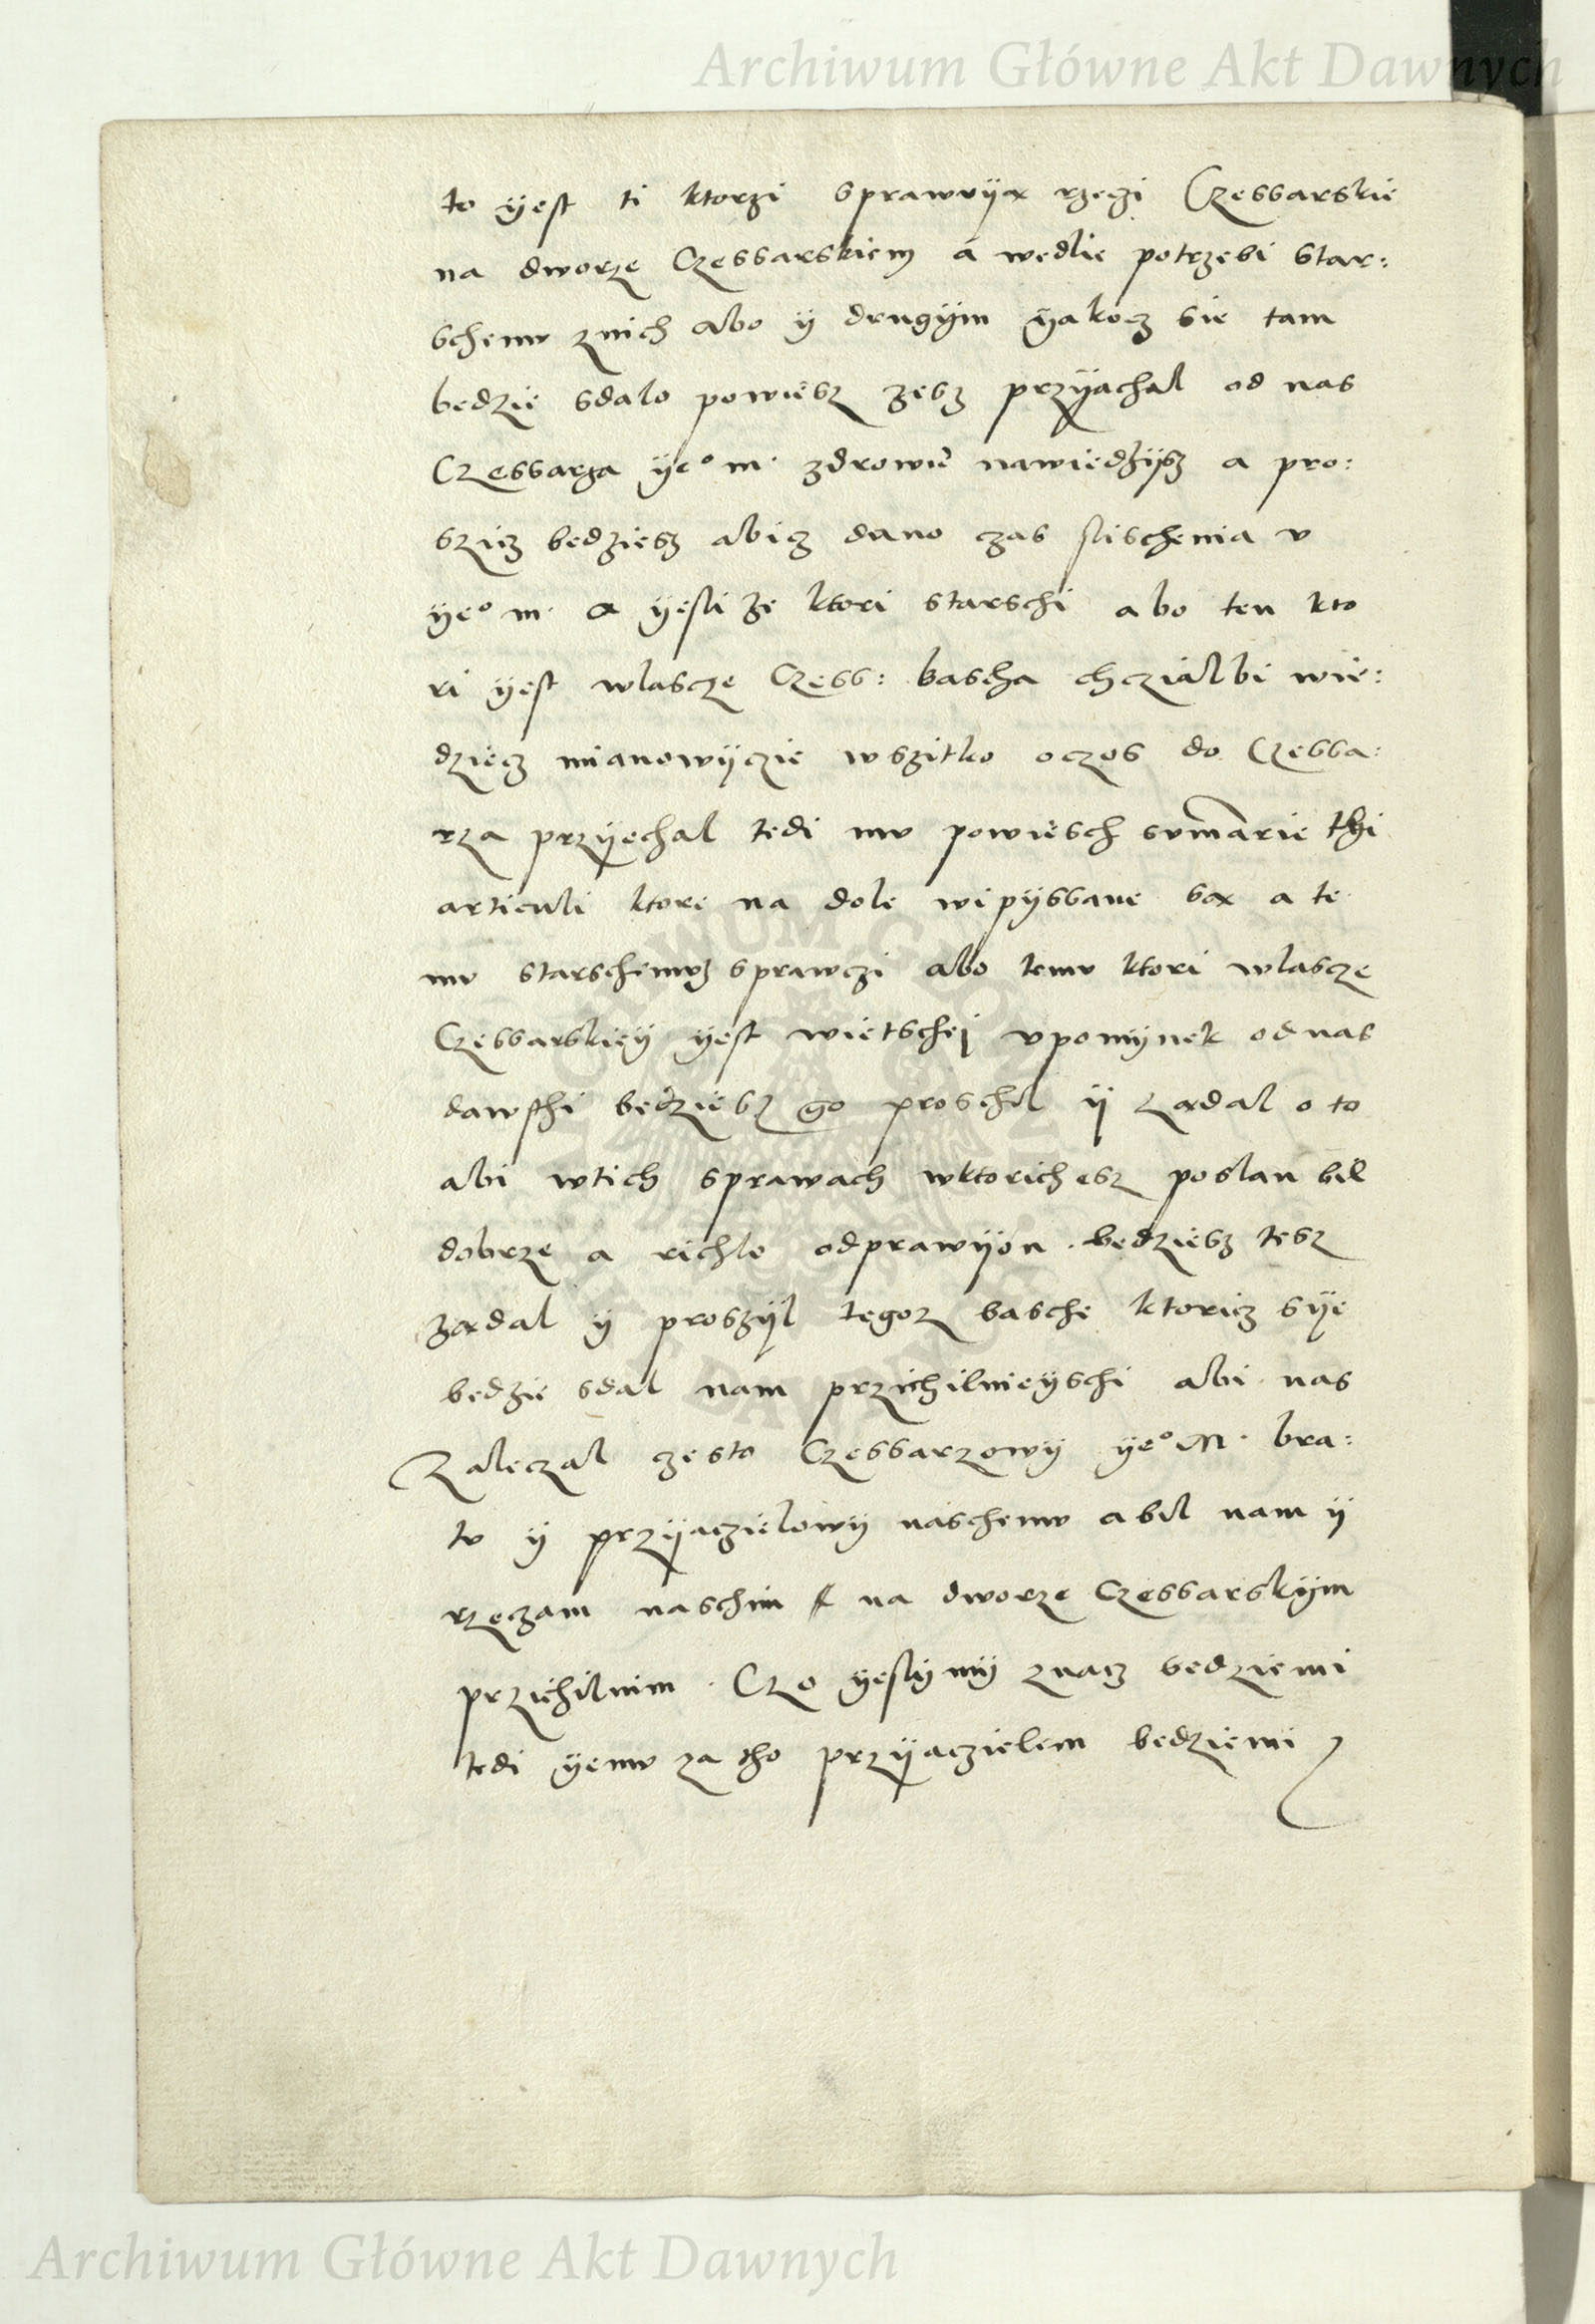 Archiwum Główne Akt Dawnych
to yest ti ktorzi sprawuyą rzeczi Czessarskie
na dworze Czessarskiem á wedlie potrzebi star:
schemu znich abo ÿ drugÿm ÿakocz sie tam
bedzie sdalo powiesz zesz przÿachal od nas
Czessarza ÿeº m. zdrowie nawiedzÿsz a pro:
szicz bedziesz abicz dano czas slischenia v
ÿeº m. a ÿesli ze ktori starschi abo ten kto
ri ÿest wlascze Czess: bascha chczialbi wie:
dziecz mianowÿczie wszitko oczos do Czessa:
rza przÿechal tedi mu powiesch summarie thi
articuli ktore na dole wipÿssane są a te
mu starschemuz sprawczi abo temu ktori wlascze
Czessarskieÿ ÿest wietschej vpomÿnek od nas
dawschi bedziesz go proschil ÿ ządal o to
abi wtich sprawach wktorichesz poslan bil
dobrze a richlo odprawÿon. bedziesz tesz
ządal ÿ proszÿl tegoz basche ktoricz sÿe
bedzie sdal nam przichilnieÿschi abi nas
Zaleczal czesto Czessarzowÿ ÿeº M. bra:
tu ÿ przÿaczielowÿ naschemu abil nam ÿ
rzeczam naschim na dworze Czessarskÿm
przichilnim. Czo ÿeslÿ mÿ znacz bedziemi
tedi ÿemu za tho przÿaczielem bedziemi
Archiwum Główne Akt Dawnych